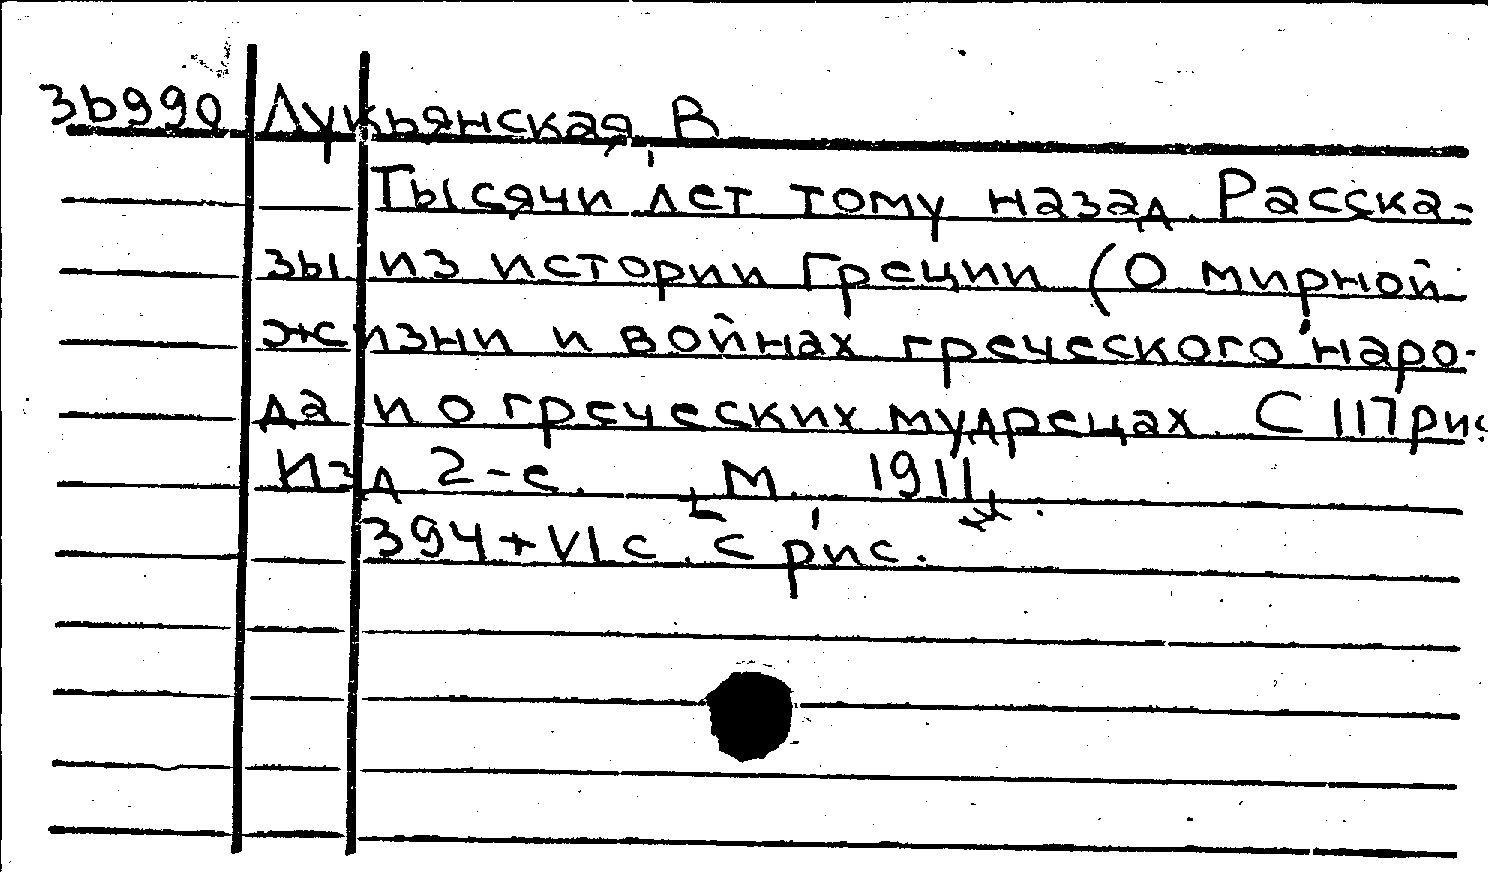 3b990 Лукьянская, В.
Тысячи лет тому назад. Расска-
зы из истории Греции (О мирной
жизни и войнах греческого наро-
да и о греческих мудрецах. С 117 рис.
Изд 2-е. М. 1911.
394+VI с. с рис.